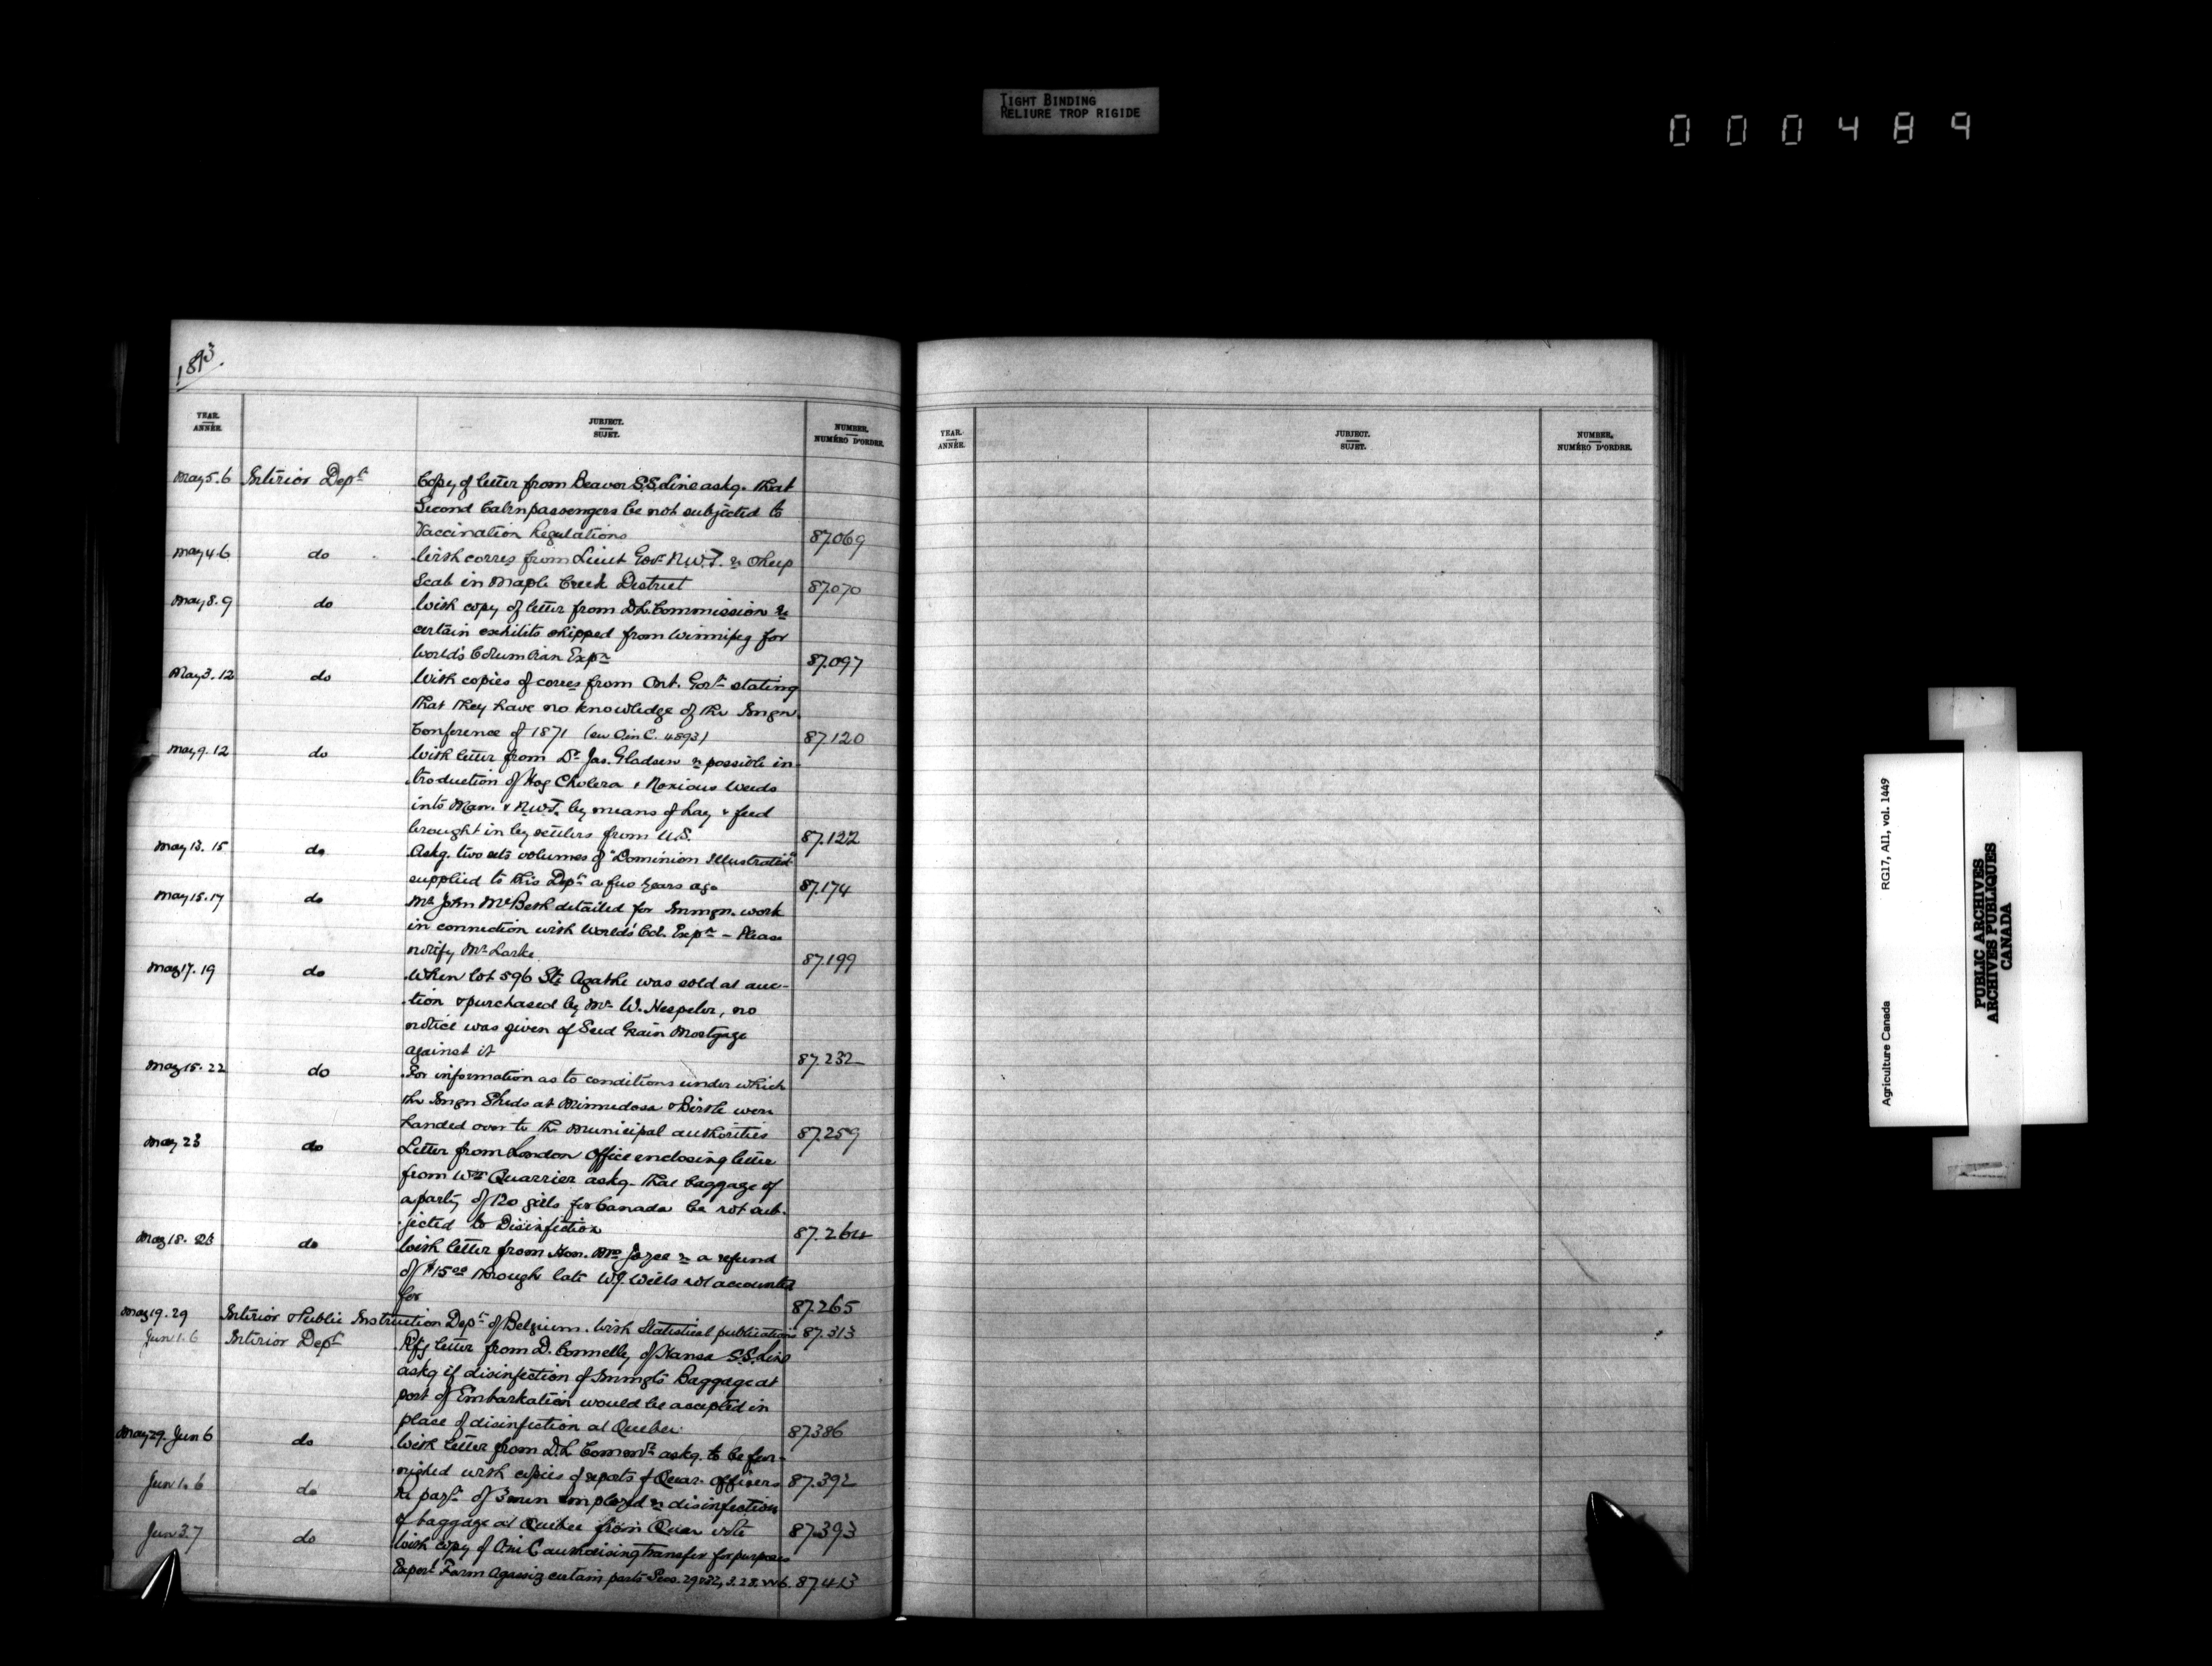 TIGHT BINDING
RELIURE TROP RIGIDE
000489
1893.
YEAR. ANNÉE. JUBJECT. SUJET. NUMBER. NUMÉRO D'ORDRE.
YEAR. ANNÉE. JUBJECT. SUJET. NUMBER. NUMÉRO D'ORDRE.
May 5.6 Interior Dept Copy of letter from Beaver S.S. Line askg. that
Second Cabin passengers be not subjected to
Vaccination Regulations 87.069
May 4.6 do With corres from Lieut Govr N.W.T. re Sheep
Scab in Maple Creek District 87.070
May 8.9 do With copy of letter from D.L. Commission re
certain exhibits shipped from Winnipeg for
World's Columbian Expn 87.097
May 3.12 do With copies of corres from Ont. Govt stating
that they have no knowledge of the Immgn.
Conference of 1871 (see O in C. 4893) 87.120
May 9.12 do With letter from Dr Jas. Gladsen re possible in-
troduction of Hog Cholera & Noxious Weeds
into Man. & N.W.T. by means of hay & feed
brought in by settlers from U.S. 87.122
May 13.15 do Askg. two sets volumes of "Dominion Illustrated"
supplied to this Dept a few years ago 87.174
May 15.17 do Mr John McBeth detailed for Immgn. work
in connection with World's Col. Expn - Please
notify Mr Larke 87.199
May 17.19 do When lot 596 Ste Agathe was sold at auc-
tion & purchased by Mr W. Hespeler, no
notice was given of Seed Grain Mortgage
against it 87.232
May 15.22 do For information as to conditions under which
the Immgn Sheds at Minnedosa & Birtle were
handed over to the Municipal authorities 87.259
May 23 do Letter from London Office enclosing letter
from Wm Quarrier askg. that baggage of
a party of 120 girls for Canada be not sub-
jected to Disinfection 87.264
May 18. do With letter from Hon. Mrs Joyce re a refund
of $15.00 through late W.J. Wills not accounted
for 87.265
May 19.29 Interior & Public Instruction Dept of Belgium. With Statistical publications 87.313
Jun 1.6 Interior Dept Rfg letter from D. Connelly of Hansa S.S. Line
askg if disinfection of Immgts Baggage at
port of Embarkation would be accepted in
place of disinfection at Quebec. 87.386
May 29. Jun 6 do With letter from D.L. Commr askg. to be fur-
nished with copies of reports of Quar. Officers 87.392
Jun 1.6 do Re payt of 3 men employed re disinfection
of baggage at Quebec from Quar vote 87.393
Jun 3.7 do With copy of O in C authorising transfer for purposes
Experl Farm Agassiz certain parts Secs. 29 & 32, 3. 28. W 6. 87.413
Agriculture Canada RG17, AI1, vol. 1449
PUBLIC ARCHIVES
ARCHIVES PUBLIQUES
CANADA